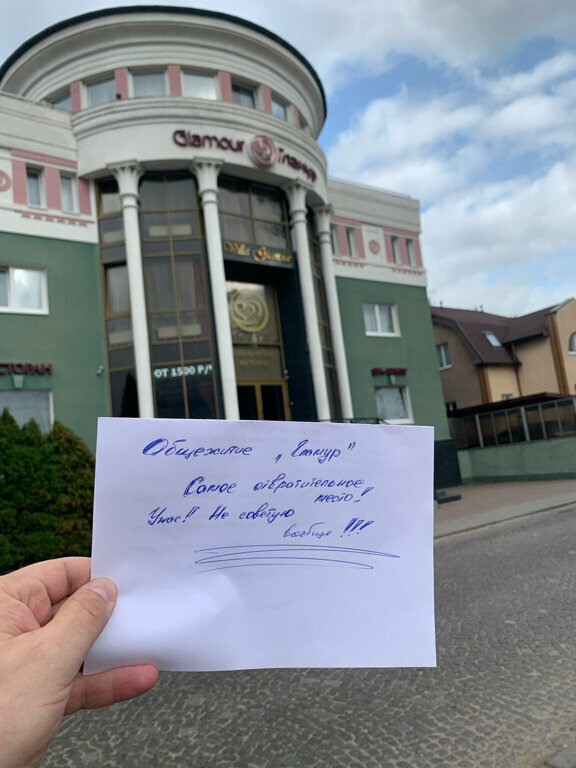 Glamour Гламур
Villa Glamour
РЕСТОРАН
ОТ 1500 Р/
Общежитие „Гламур"
Самое отвратительное
место!!
Ужас!! Не советую
вообще !!!